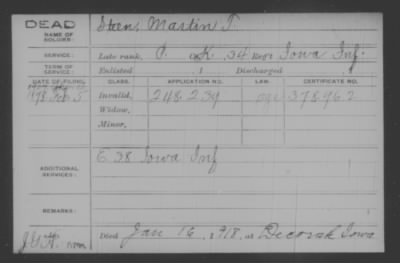 DEAD
NAME OF SOLDIER: Steen, Martin T.
SERVICE: Late rank, P. Co. K, 34 Reg't Iowa Inf.
TERM OF SERVICE: Enlisted , 1 Discharged , 1
DATE OF FILING. CLASS. APPLICATION NO. LAW. CERTIFICATE NO.
1878 Feb 5 Invalid, 248239 378962
Widow,
Minor,
ADDITIONAL SERVICES: E 38 Iowa Inf
REMARKS:
Died Jan 16, 1918, at Decorah Iowa